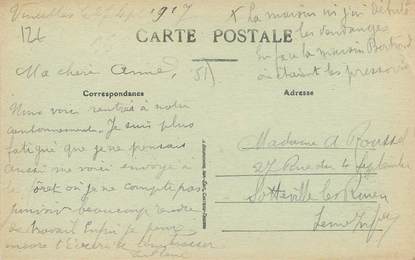 Vincelles le 27 Sept 1917
126
X La maison où j'ai débuté
les vendanges
En face la maison Bertrand
où étaient les pressoirs
CARTE POSTALE
Ma chère Anna,
51
Correspondance
Adresse
Nous voici rentrés à notre
cantonnement. Je suis plus
fatigué que je ne pensais
aussi me voici envoyé à
la forêt où je ne compte pas
pouvoir beaucoup
de travail Enfin je pense
encore t'embrasser
Madame A Roussel
27 Rue du 4 Septembre
Sotteville les Rouen
Seine Infre